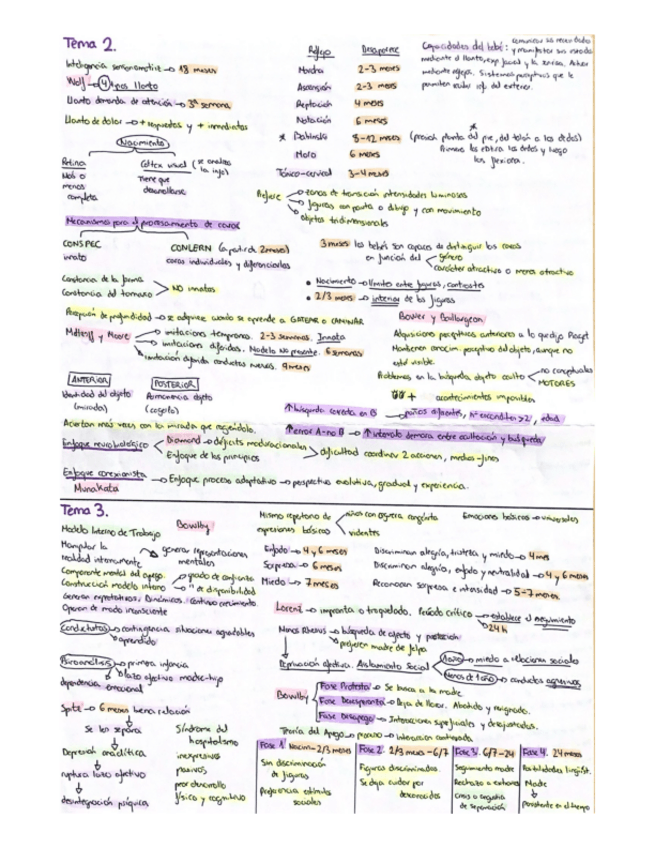 Tema 2.
Inteligencia sensomotriz → 18 meses
Wolf → 4 tipos llanto
Llanto demanda de atención → 3ª semana
Llanto de dolor → + respuestas y + inmediatas
Nacimiento
Retina
Más o menos completa
Córtex visual (se analiza la info)
Tiene que desarrollarse
Reflejo Desaparece
Marcha 2-3 meses
Ascensión 2-3 meses
Reptación 4 meses
Natación 6 meses
* Babinski 8-12 meses (presión planta del pie, del talón a los dedos)
Primero los estira los dedos y luego los flexiona.
Moro 6 meses
Tónico-cervical 3-4 meses
Capacidades del bebé: comunicar sus necesidades
y manifestar sus estados
mediante el llanto, exp. facial y la sonrisa. Actuar
mediante reflejos. Sistemas perceptivos que le
permiten recibir inf. del exterior.
Prefiere → zonas de transición intensidades luminosas
→ figuras con pauta o dibujo y con movimiento
→ objetos tridimensionales
Mecanismos para el procesamiento de caras
CONSPEC
innato
CONLERN (a partir de 2 meses)
caras individuales y diferenciarlas
3 meses los bebés son capaces de distinguir las caras
en función del género
carácter atractivo o menos atractivo
Constancia de la forma
Constancia del tamaño
NO innatas
• Nacimiento → límites entre figuras, contrastes
• 2/3 meses → interior de las figuras
Percepción de profundidad → se adquiere cuando se aprende a GATEAR o CAMINAR
Meltzoff y Moore → imitaciones tempranas. 2-3 semanas. Innata
→ imitaciones diferidas. Modelo No presente. 6 semanas
→ imitación diferida conductas nuevas. 9 meses
Bower y Baillargeon
Adquisiciones perceptivas anteriores a lo que dijo Piaget
Mantienen conocim. perceptivo del objeto, aunque no
esté visible.
Problemas en la búsqueda objeto oculto → no conceptuales
MOTORES
acontecimientos imposibles
ANTERIOR
Identidad del objeto
(mirada)
POSTERIOR
Permanencia objeto
(cogerlo)
Aciertan más veces con la mirada que cogiéndolo.
↑ búsqueda correcta en B → paños diferentes, nº escondites >2, edad
↑ error A-no B → ↑ intervalo demora entre ocultación y búsqueda
Enfoque neurobiológico
Diamond → déficits maduracionales
Enfoque de los principios
dificultad coordinar 2 acciones, medios-fines
Enfoque conexionista
Munakata
→ Enfoque procesos adaptativo → perspectiva evolutiva, gradual y experiencia.
Tema 3.
Modelo Interno de Trabajo Bowlby
Manipular la realidad internamente
generar representaciones mentales
Componente mental del apego.
Construcción modelo interno → grado de confianza
→ " de disponibilidad
Generan expectativas. Dinámicos. Continuo crecimiento.
Operan de modo inconsciente
Conductistas → contingencia situaciones agradables
→ aprendido
Psicoanálisis → primera infancia
→ lazo afectivo madre-hijo
dependencia emocional
Spitz → 6 meses buena relación
Se les separa
Depresión anaclítica
ruptura lazo afectivo
desintegración psíquica
Síndrome del
hospitalismo
inexpresivos
pasivos
peor desarrollo
físico y cognitivo
Mismo repertorio de
expresiones básicas
niños con ceguera congénita
videntes
Emociones básicas → universales
Enfado → 4 y 6 meses
Sorpresa → 6 meses
Miedo → 7 meses
Discriminan alegría, tristeza y miedo → 4 mes
Discriminan alegría, enfado y neutralidad → 4 y 6 meses
Reconocen sorpresa e intensidad → 5-7 meses
Lorenz → impronta o troquelado. Período crítico → establece el seguimiento
→ 24 h
Monos Rhesus → búsqueda de afecto y protección
→ prefieren madre de felpa
Deprivación afectiva. Aislamiento Social
1 año → miedo a relaciones sociales
Menos de 1 año → conductas agresivas
Bowlby
Fase Protesta → Se busca a la madre
Fase Desesperanza → Deja de llorar. Abatido y resignado.
Fase Desapego → Interacciones superficiales y desajustadas.
Teoría del Apego → proceso → Interacción continuada
Fase 1 Nacim-2/3 meses
Sin discriminación
de figuras
Preferencia estímulos
sociales
Fase 2. 2/3 meses-6/7
Figuras discriminadas.
Se deja cuidar por
desconocidos
Fase 3. 6/7-24
Seguimiento madre
Rechazo a extraños
Crisis o angustia
de separación
Fase 4. 24 meses
Posibilidades lingüíst.
Madre
persistente en el tiempo